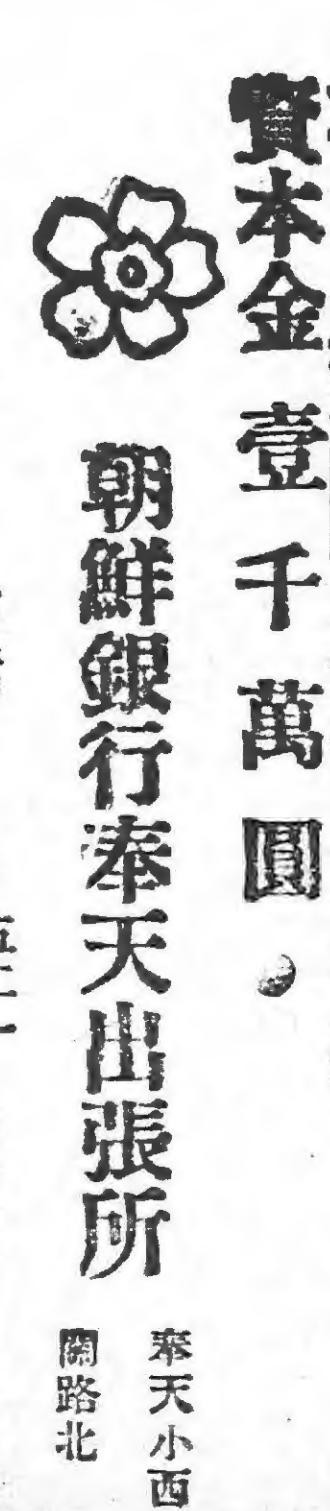 資本金壹千萬圓
朝鮮銀行奉天出張所
奉天小西
關路北